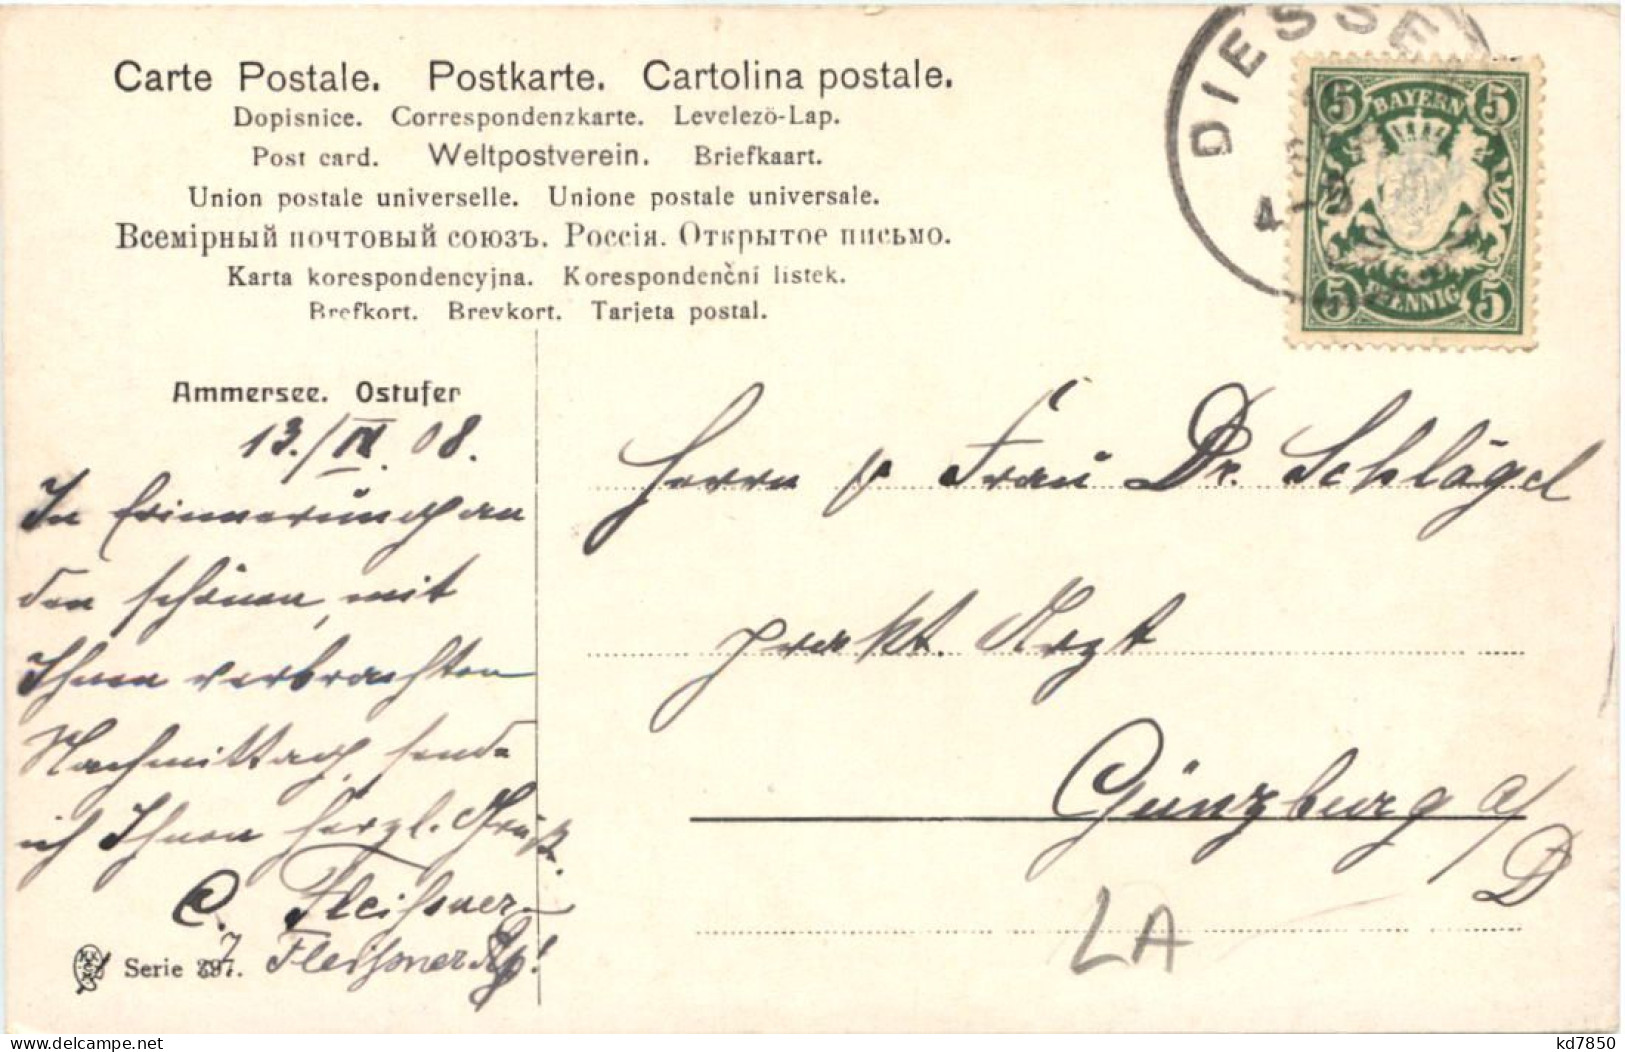 Carte Postale. Postkarte. Cartolina postale.
Dopisnice. Correspondenzkarte. Levelezö-Lap.
Post card. Weltpostverein. Briefkaart.
Union postale universelle. Unione postale universale.
Всемірный почтовый союзъ. Россія. Открытое письмо.
Karta korespondencyjna. Korespondenční listek.
Brefkort. Brevkort. Tarjeta postal.
DIESSE
4-5
5 BAYERN 5
5 PFENNIG 5
Ammersee. Ostufer
13./IX. 08.
In Erinnerung an
den schönen, mit
Ihnen verbrachten
Nachmittag sende
ich Ihnen herzl. Grüße.
C. Fleißner
Fleißner
Serie 397.
Herrn Frau Dr. Schlägel
prakt. Arzt
Günzburg a/
D
LA
kd7850